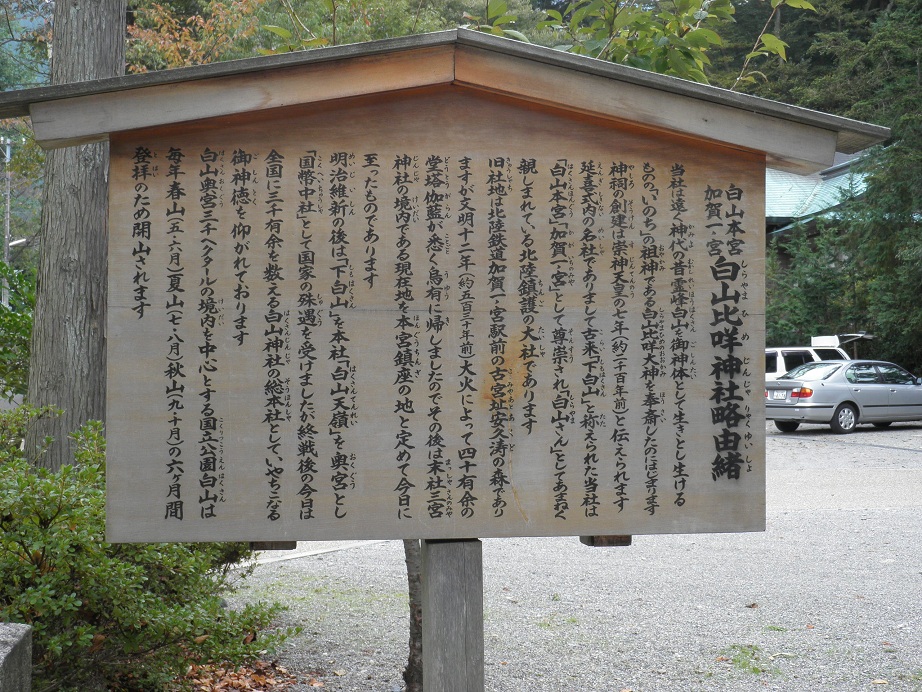 白山本宮
加賀一宮
白山比咩神社略由緒
当社は遠く神代の昔霊峰白山を御神体として生きとし生ける
もののいのちの祖神である白山比咩大神を奉斎したのにはじまります
神祠の創建は崇神天皇の七年(約二千百年前)と伝えられます
延喜式内の名社でありまして古来「下白山」と称えられた当社は
「白山本宮」「加賀一ノ宮」として尊崇され「白山さん」としてあまねく
親しまれている北陸鎮護の大社であります
旧社地は北陸鉄道加賀一ノ宮駅前の古宮址安久濤の森であり
ますが文明十二年(約五百三十年前)大火によって四十有余の
堂塔伽藍が悉く烏有に帰しましたのでその後は末社三宮
神社の境内である現在地を本宮鎮座の地と定めて今日に
至ったものであります
明治維新の後は「下白山」を本社「白山天嶺」を奥宮とし
「国幣中社」として国家の殊遇を受けましたが終戦後の今日は
全国に三千有余を数える白山神社の総本社としていやちこなる
御神徳を仰がれております
白山奥宮三千ヘクタールの境内を中心とする国立公園白山は
毎年春山(五・六月)夏山(七・八月)秋山(九・十月)の六ヶ月間
登拝のため開山されます